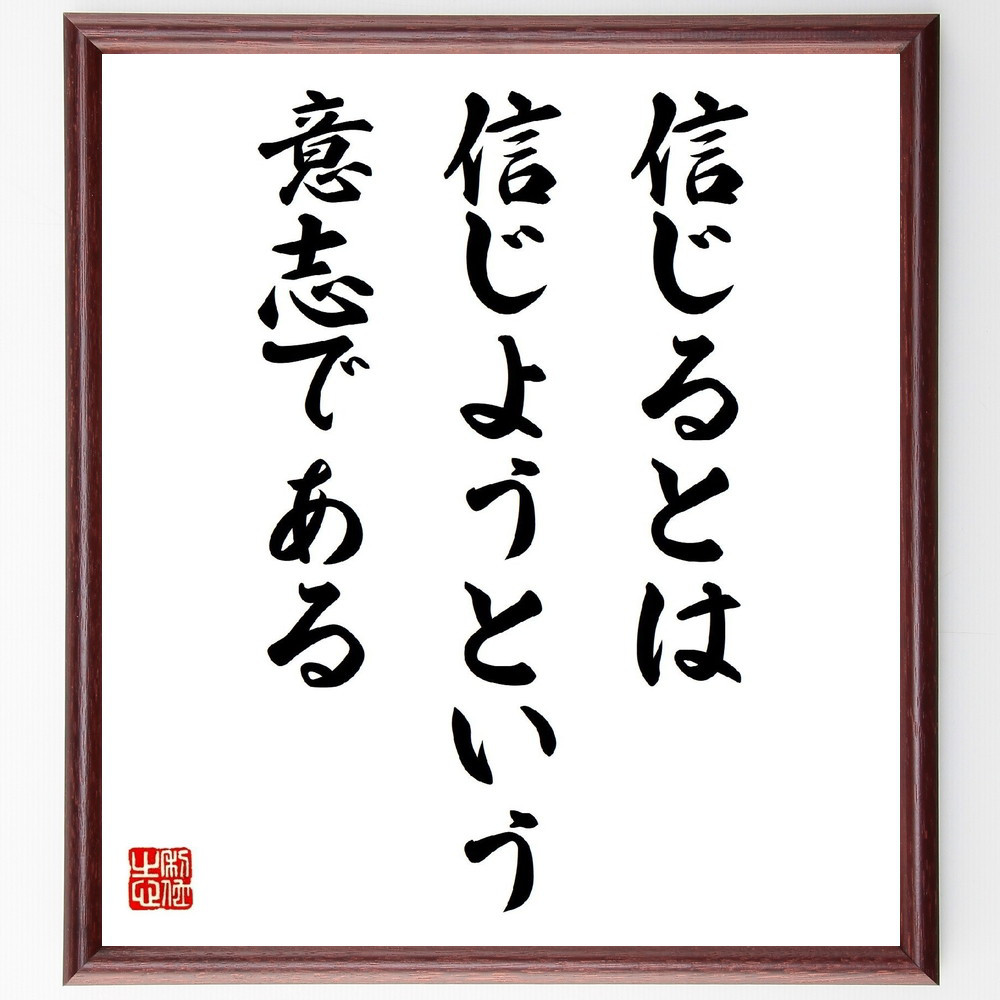 信じるとは
信じようという
意志である